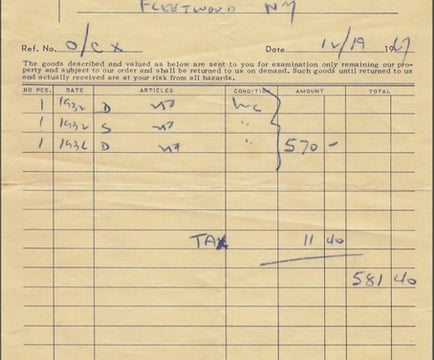 FLEETWOOD NY
Ref. No. O/C X Date 12/19 1967
The goods described and valued as below are sent to you for examination only remaining our pro-
perty and subject to our order and shall be returned to us on demand. Such goods until returned to us
and actually received are at your risk from all hazards.
NO PCS. DATE ARTICLES CONDITION AMOUNT TOTAL
1 1932 D
1 1932 S "
1 1936 D " 570 -
TAX 11 40
581 40